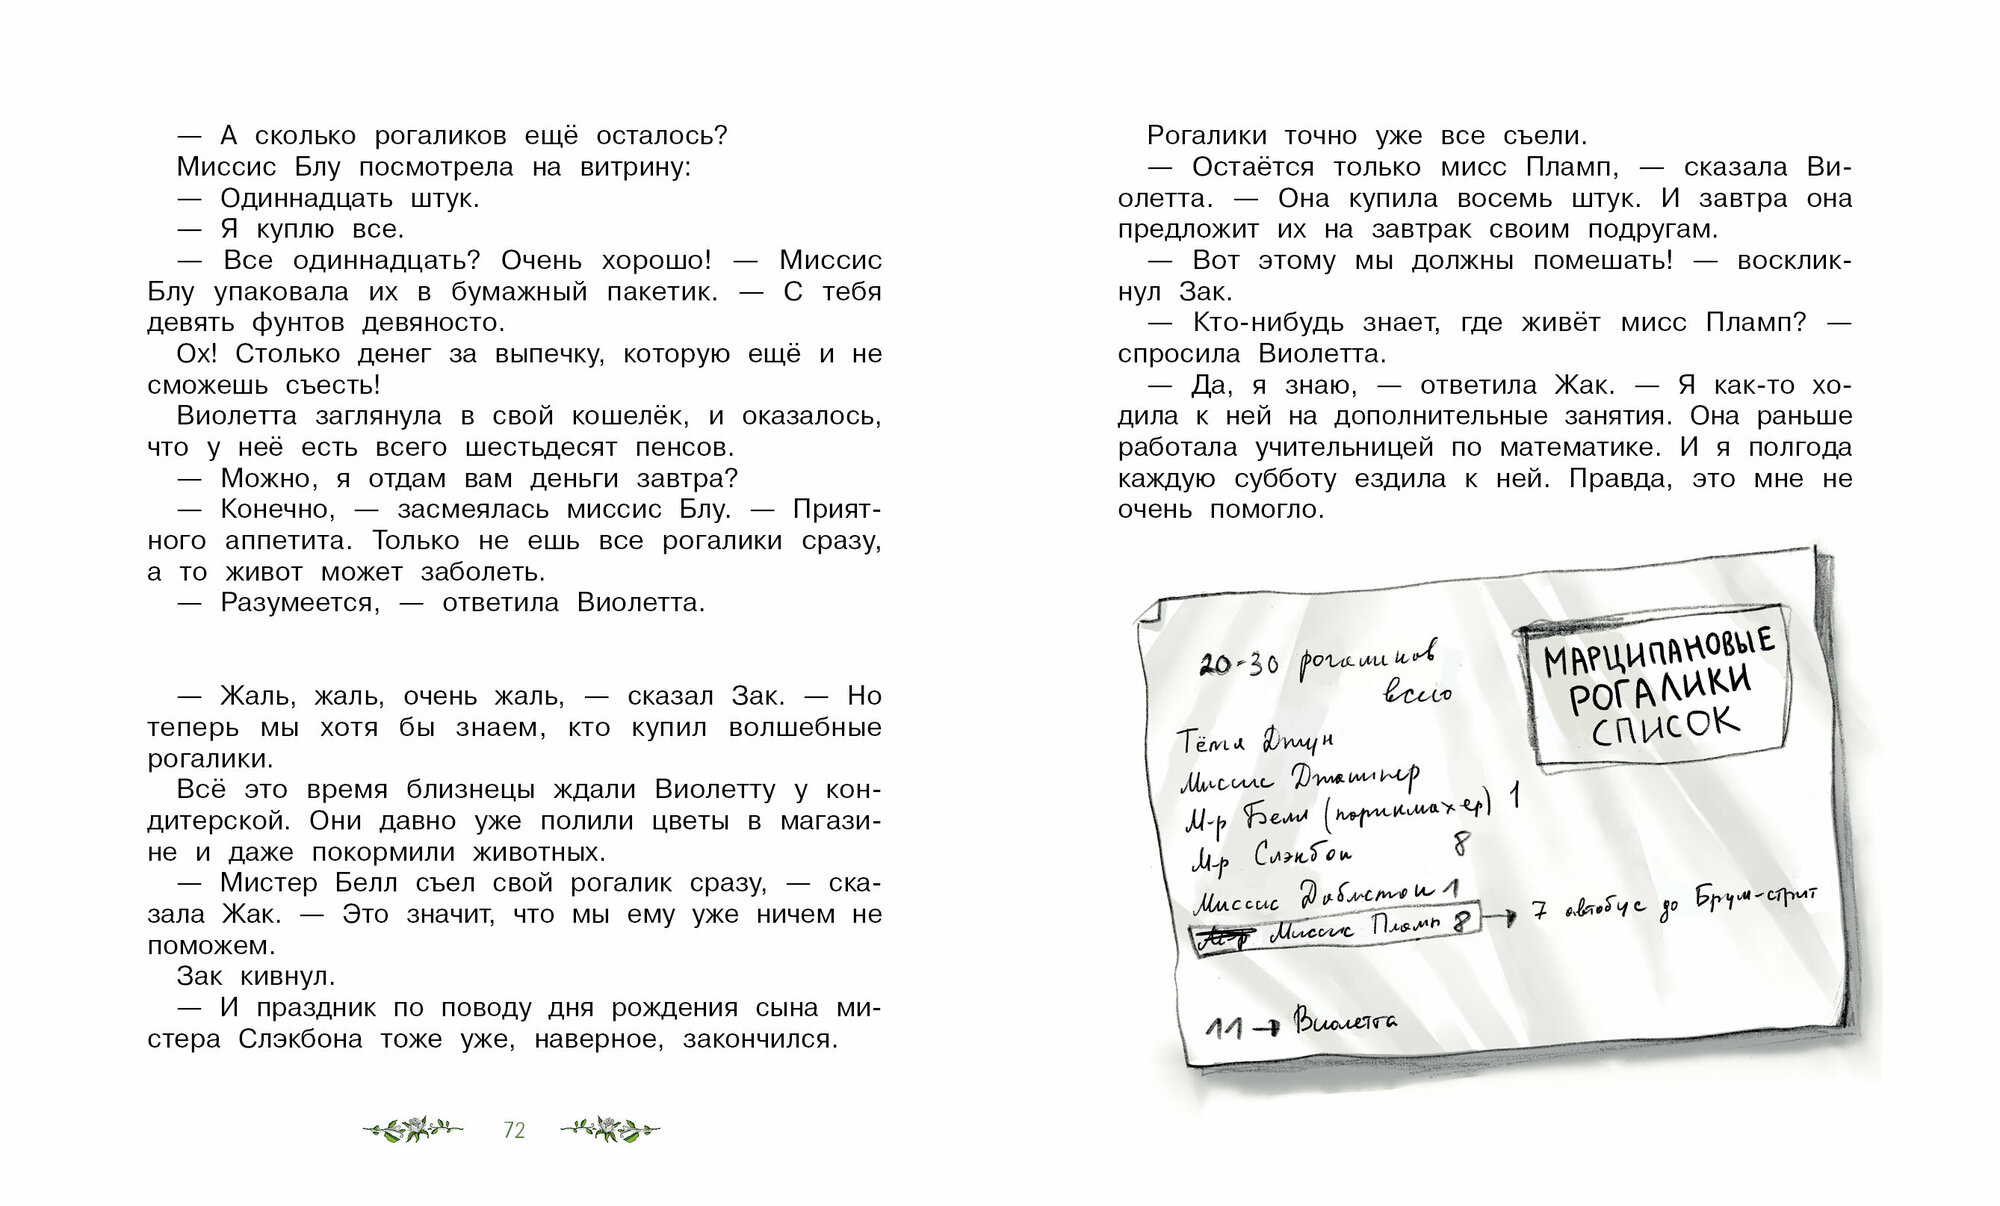 — А сколько рогаликов ещё осталось?
Миссис Блу посмотрела на витрину:
— Одиннадцать штук.
— Я куплю все.
— Все одиннадцать? Очень хорошо! — Миссис
Блу упаковала их в бумажный пакетик. — С тебя
девять фунтов девяносто.
Ох! Столько денег за выпечку, которую ещё и не
сможешь съесть!
Виолетта заглянула в свой кошелёк, и оказалось,
что у неё есть всего шестьдесят пенсов.
— Можно, я отдам вам деньги завтра?
— Конечно, — засмеялась миссис Блу. — Прият-
ного аппетита. Только не ешь все рогалики сразу,
а то живот может заболеть.
— Разумеется, — ответила Виолетта.
— Жаль, жаль, очень жаль, — сказал Зак. — Но
теперь мы хотя бы знаем, кто купил волшебные
рогалики.
Всё это время близнецы ждали Виолетту у кон-
дитерской. Они давно уже полили цветы в магази-
не и даже покормили животных.
— Мистер Белл съел свой рогалик сразу, — ска-
зала Жак. — Это значит, что мы ему уже ничем не
поможем.
Зак кивнул.
— И праздник по поводу дня рождения сына ми-
стера Слэкбона тоже уже, наверное, закончился.
72
Рогалики точно уже все съели.
— Остаётся только мисс Пламп, — сказала Ви-
олетта. — Она купила восемь штук. И завтра она
предложит их на завтрак своим подругам.
— Вот этому мы должны помешать! — восклик-
нул Зак.
— Кто-нибудь знает, где живёт мисс Пламп? —
спросила Виолетта.
— Да, я знаю, — ответила Жак. — Я как-то хо-
дила к ней на дополнительные занятия. Она раньше
работала учительницей по математике. И я полгода
каждую субботу ездила к ней. Правда, это мне не
очень помогло.
МАРЦИПАНОВЫЕ
РОГАЛИКИ
СПИСОК
20-30 рогаликов
всего
Тётя Джун
Миссис Джаспер
М-р Белл (парикмахер) 1
М-р Слэкбон 8
Миссис Дабстон 1
М-р Миссис Пламп 8 → 7 автобус до Брум-стрит
11 → Виолетта